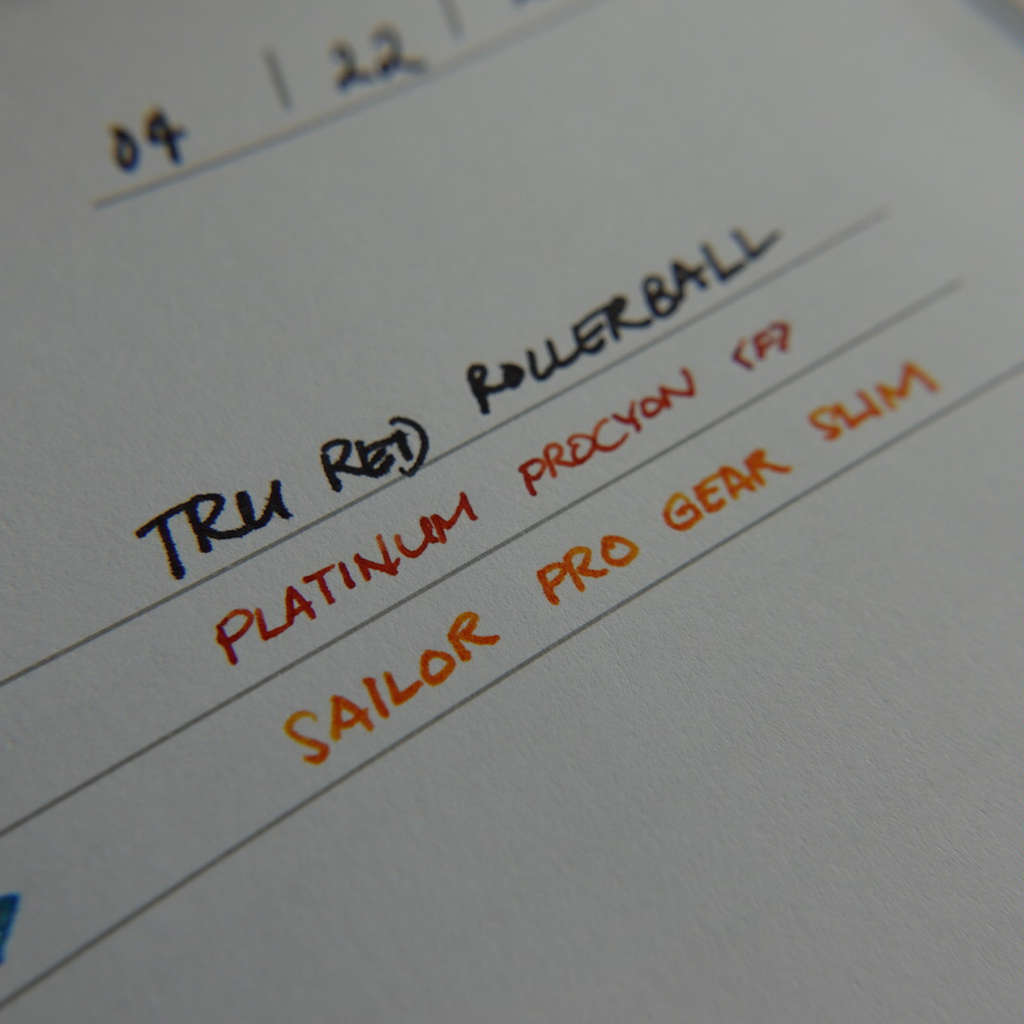 04 | 22 |
TRU RED ROLLERBALL
PLATINUM PROCYON <F>
SAILOR PRO GEAR SLIM